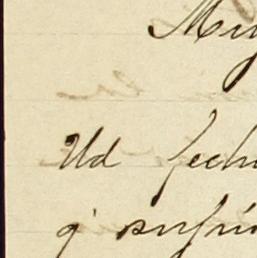 Muy
Ud fech
q' sufri